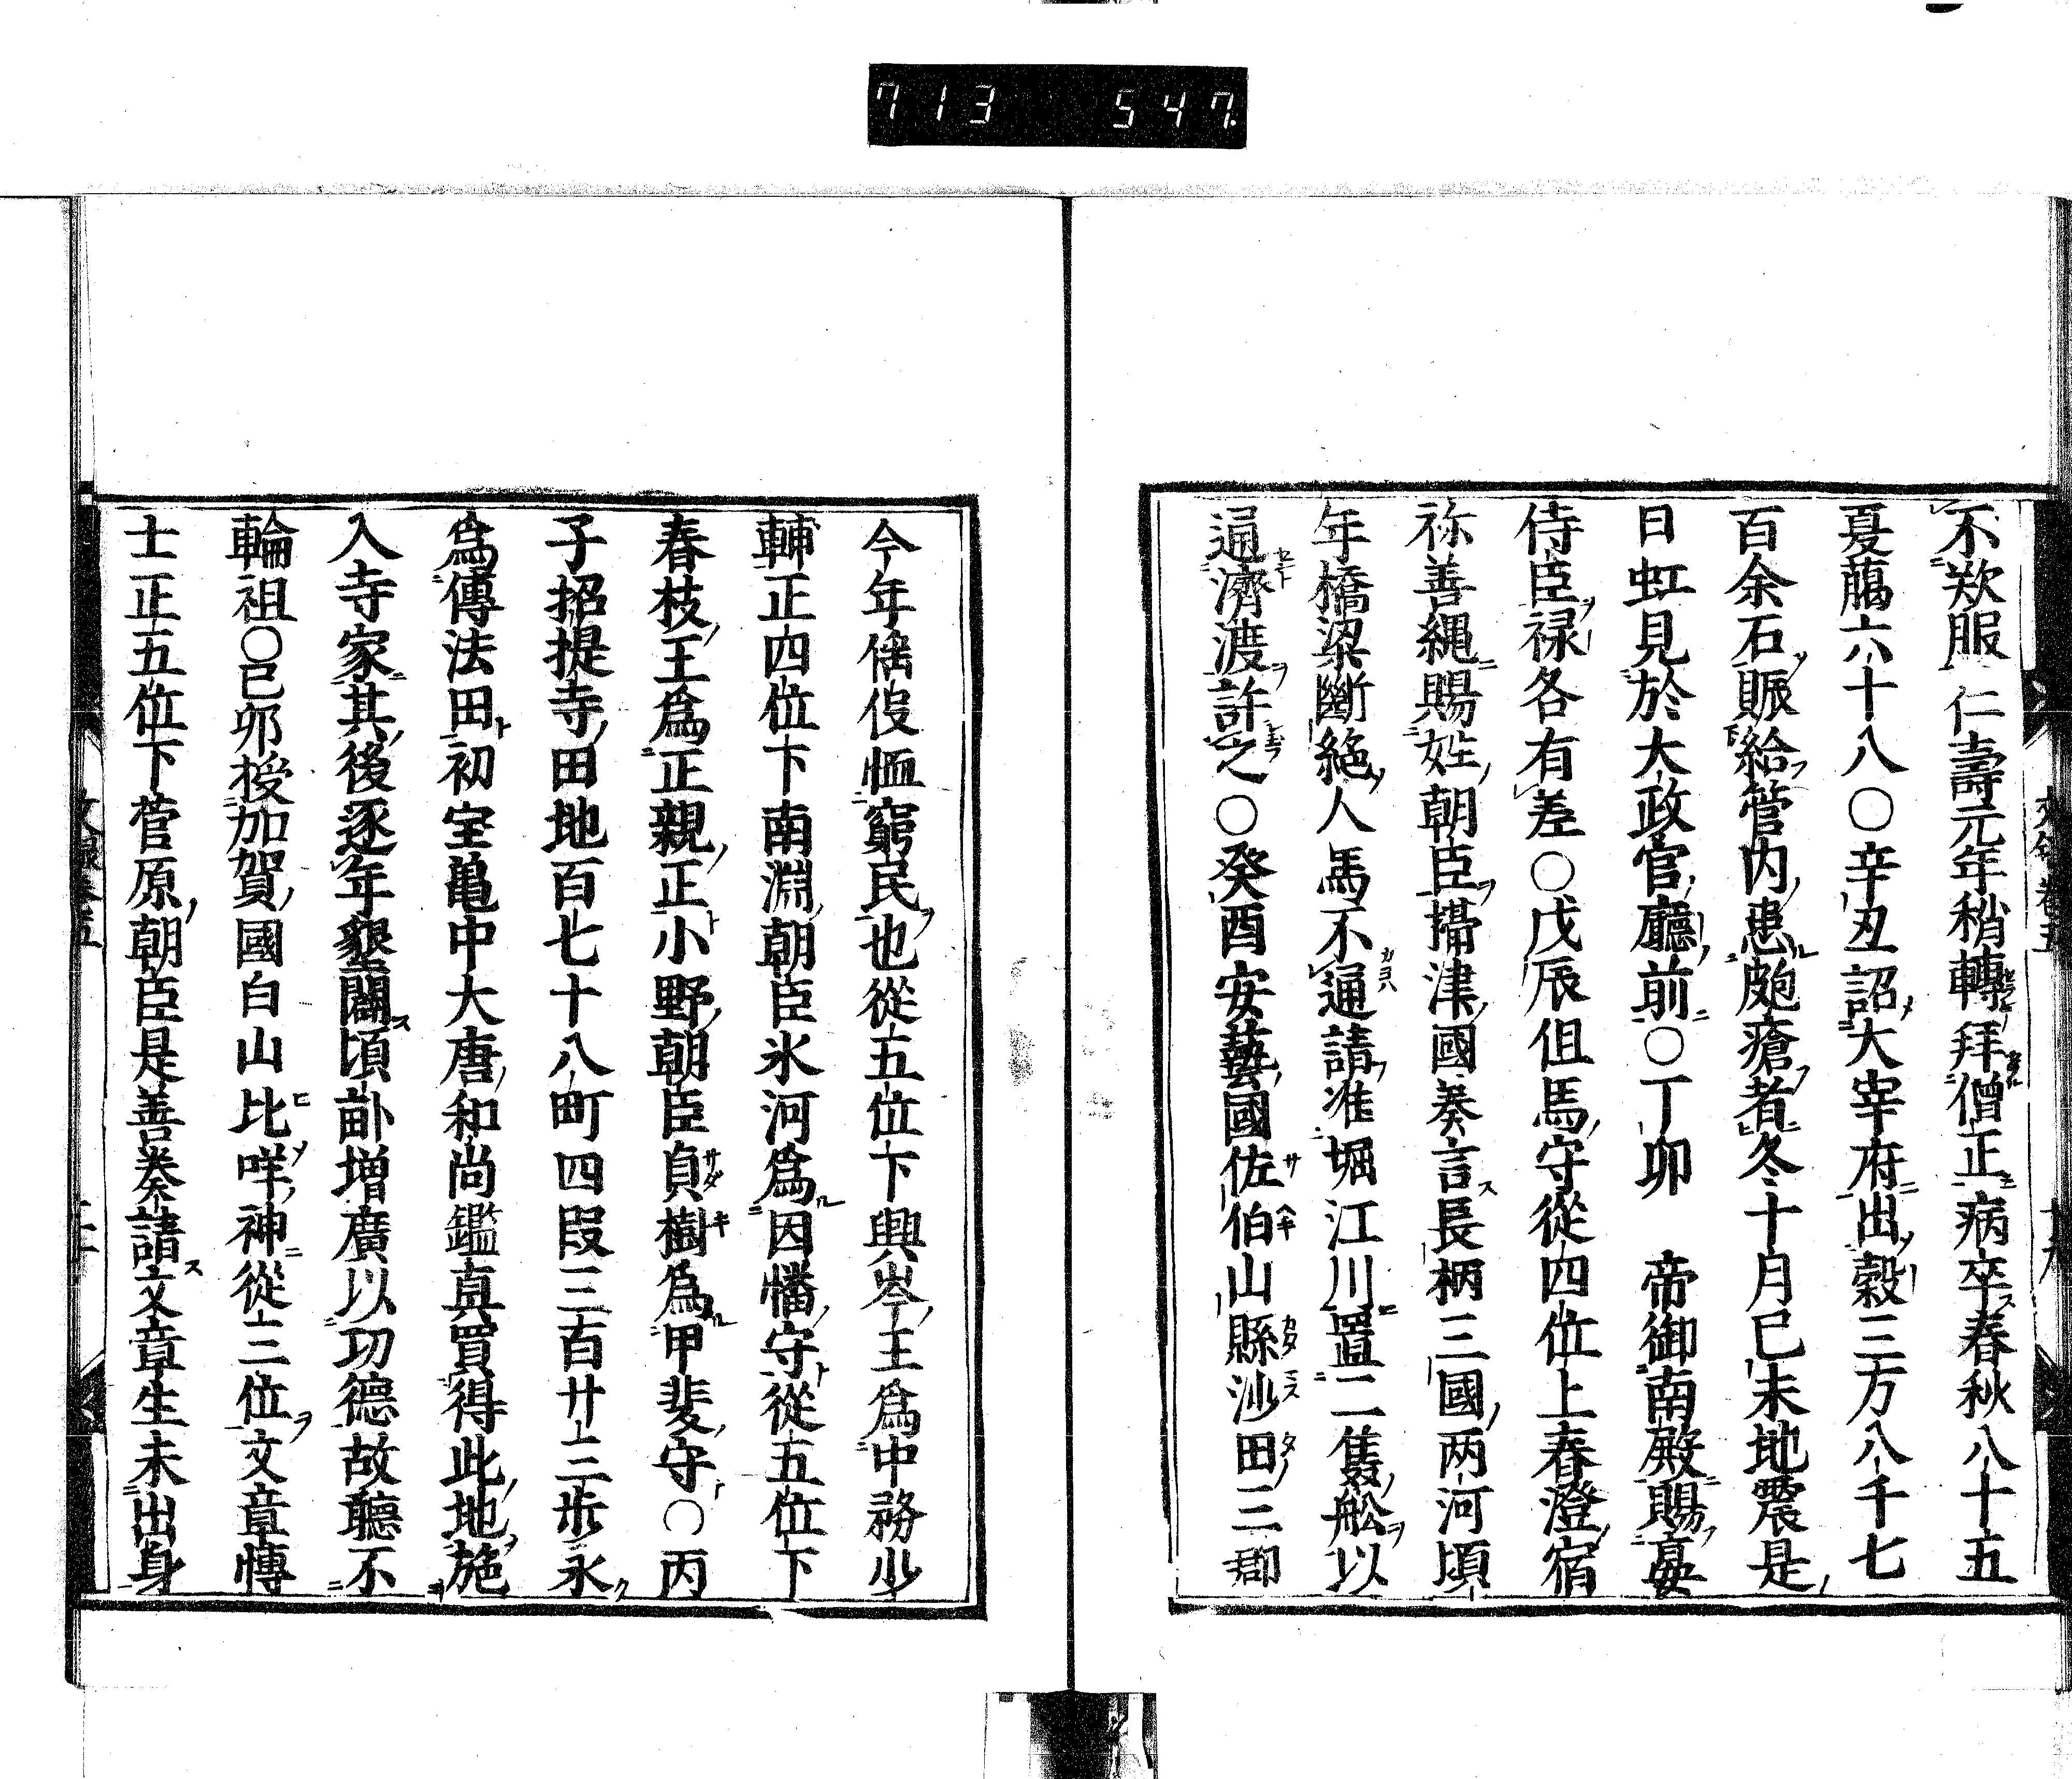 713 547
不歎服 仁壽元年稍轉拜僧正病卒春秋八十五
夏﨟六十八〇辛丑詔大宰府出穀三万八千七
百余石賑給管内患皰瘡者冬十月已未地震是
日虹見於大政官廳前〇丁卯 帝御南殿賜宴
侍臣禄各有差〇戊辰但馬守從四位上春澄宿
祢善縄賜姓朝臣攝津國奏言長柄三國两河頃
年橋梁斷絶人馬不通請准堀江川置二隻舩以
通濟渡許之〇癸酉安藝國佐伯山縣沙田三郡
今年徭伇恤窮民也從五位下興岑王爲中務少
輔正四位下南淵朝臣氷河爲因幡守從五位下
春枝王爲正親正小野朝臣貞樹爲甲斐守〇丙
子招提寺田地百七十八町四段三百廿三歩永
爲傳法田初宝亀中大唐和尚鑑真買得此地施
入寺家其後逐年墾闢頃畝增廣以功德故聽不
輪祖〇已卯授加賀國白山比咩神從三位文章博
士正五位下菅原朝臣是善奏請文章生未出身